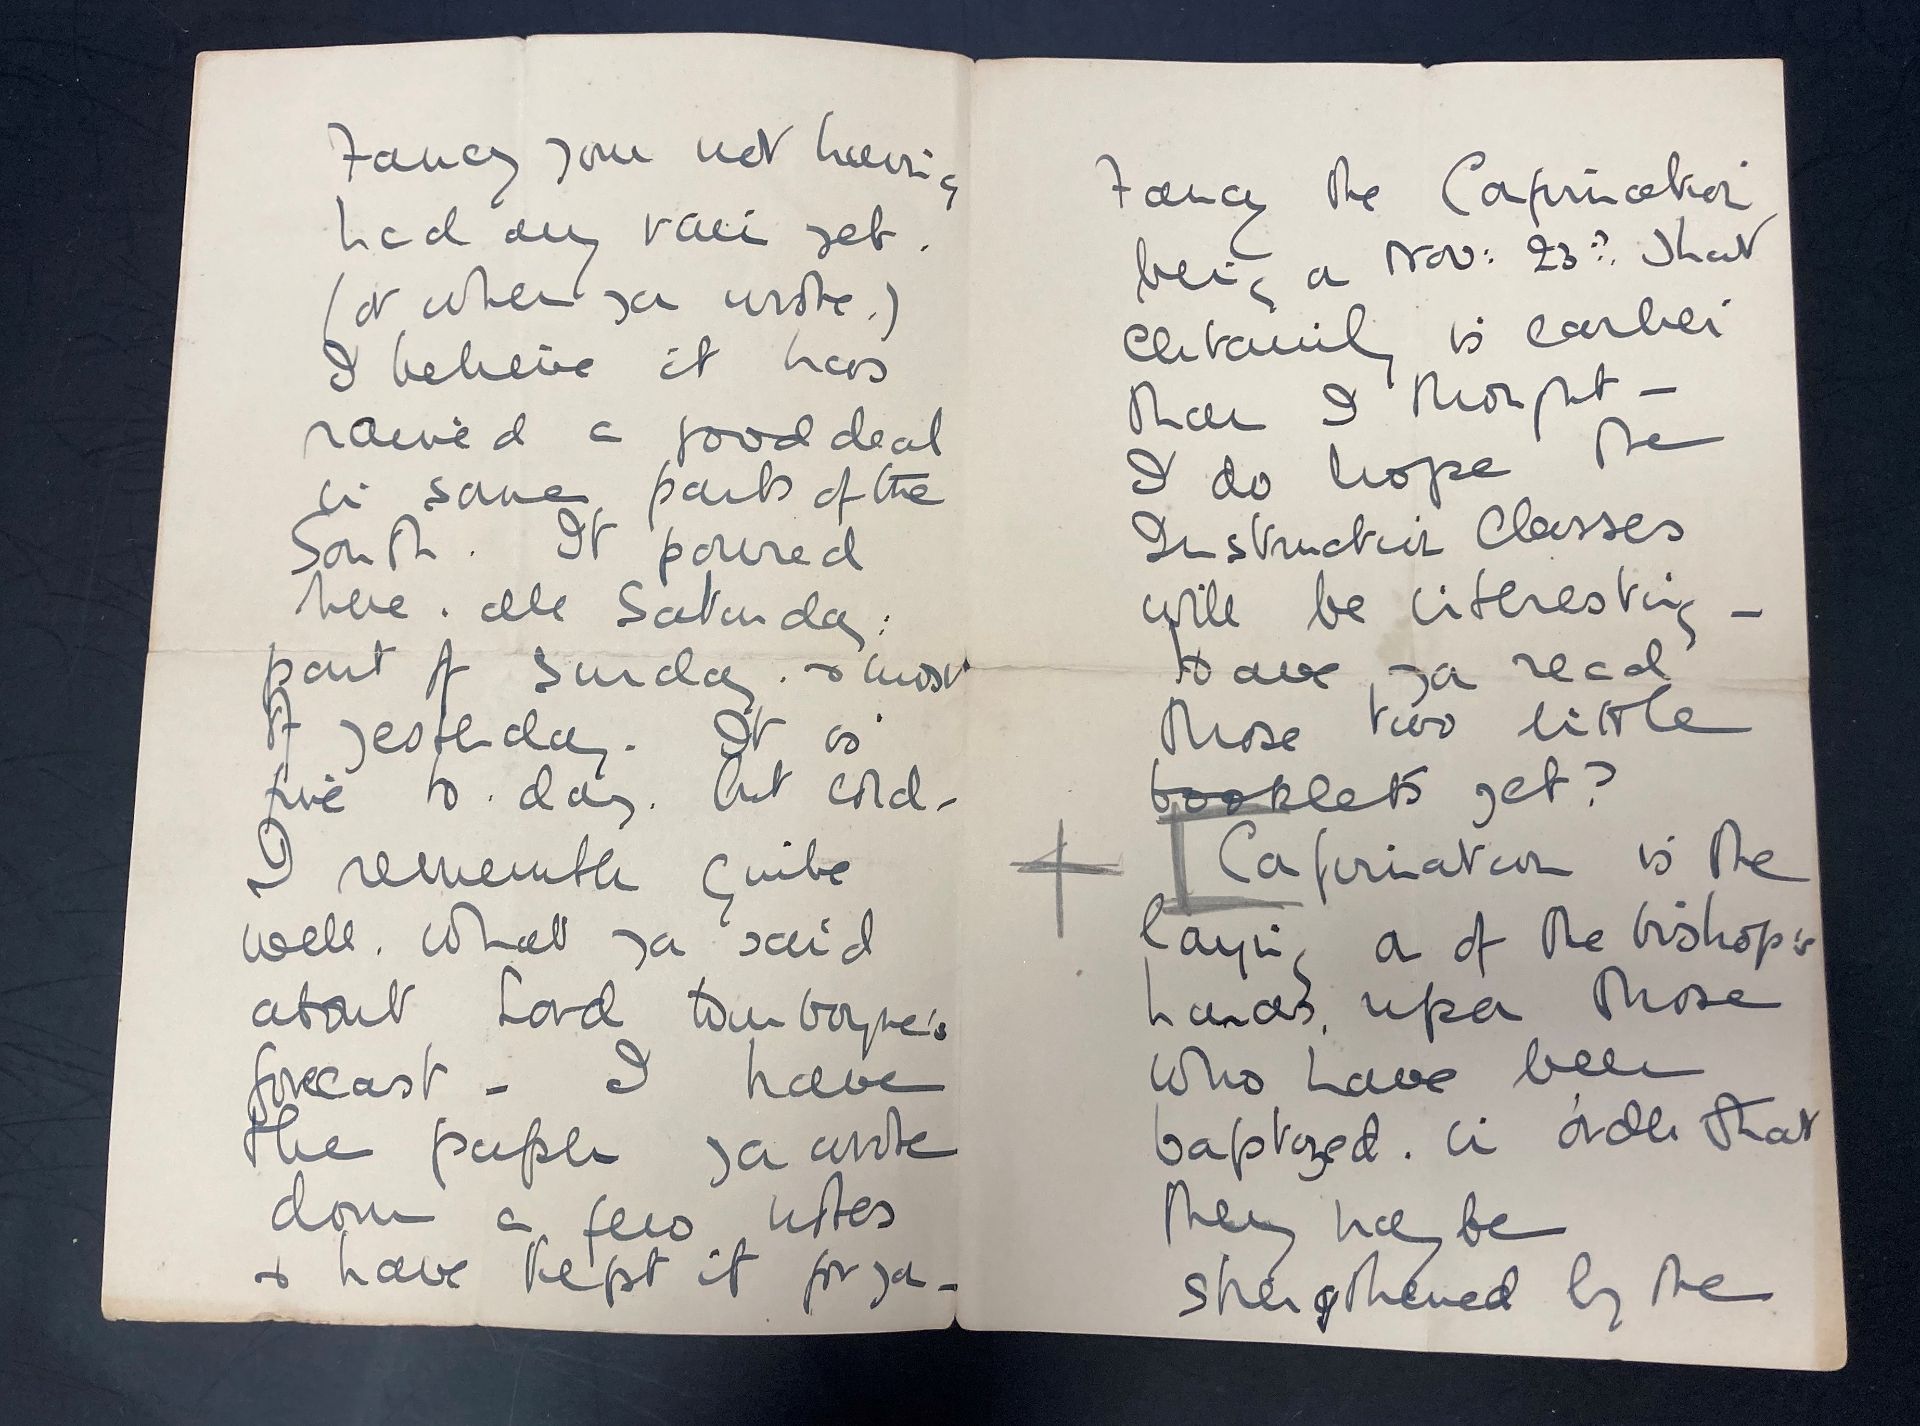 Fancy your not having
had any rain yet.
(at when you wrote.)
I believe it has
rained a good deal
in some parts of the
South. It poured
here. all Saturday:
part of Sunday. & most
of yesterday. It is
fine to.day. but cold -
I remember quite
well. what you said
about Lord
forecast - I have
the paper you wrote
down a few notes
& have kept it for you -
Fancy the Confirmation
being on Nov: 23? That
certainly is earlier
than I thought -
I do hope the
Instruction Classes
will be interesting -
Have you read
those two little
booklets yet?
+ [Confirmation is the
laying on of the bishop's
hands, upon those
who have been
baptized. in order that
they may be
strengthened by the